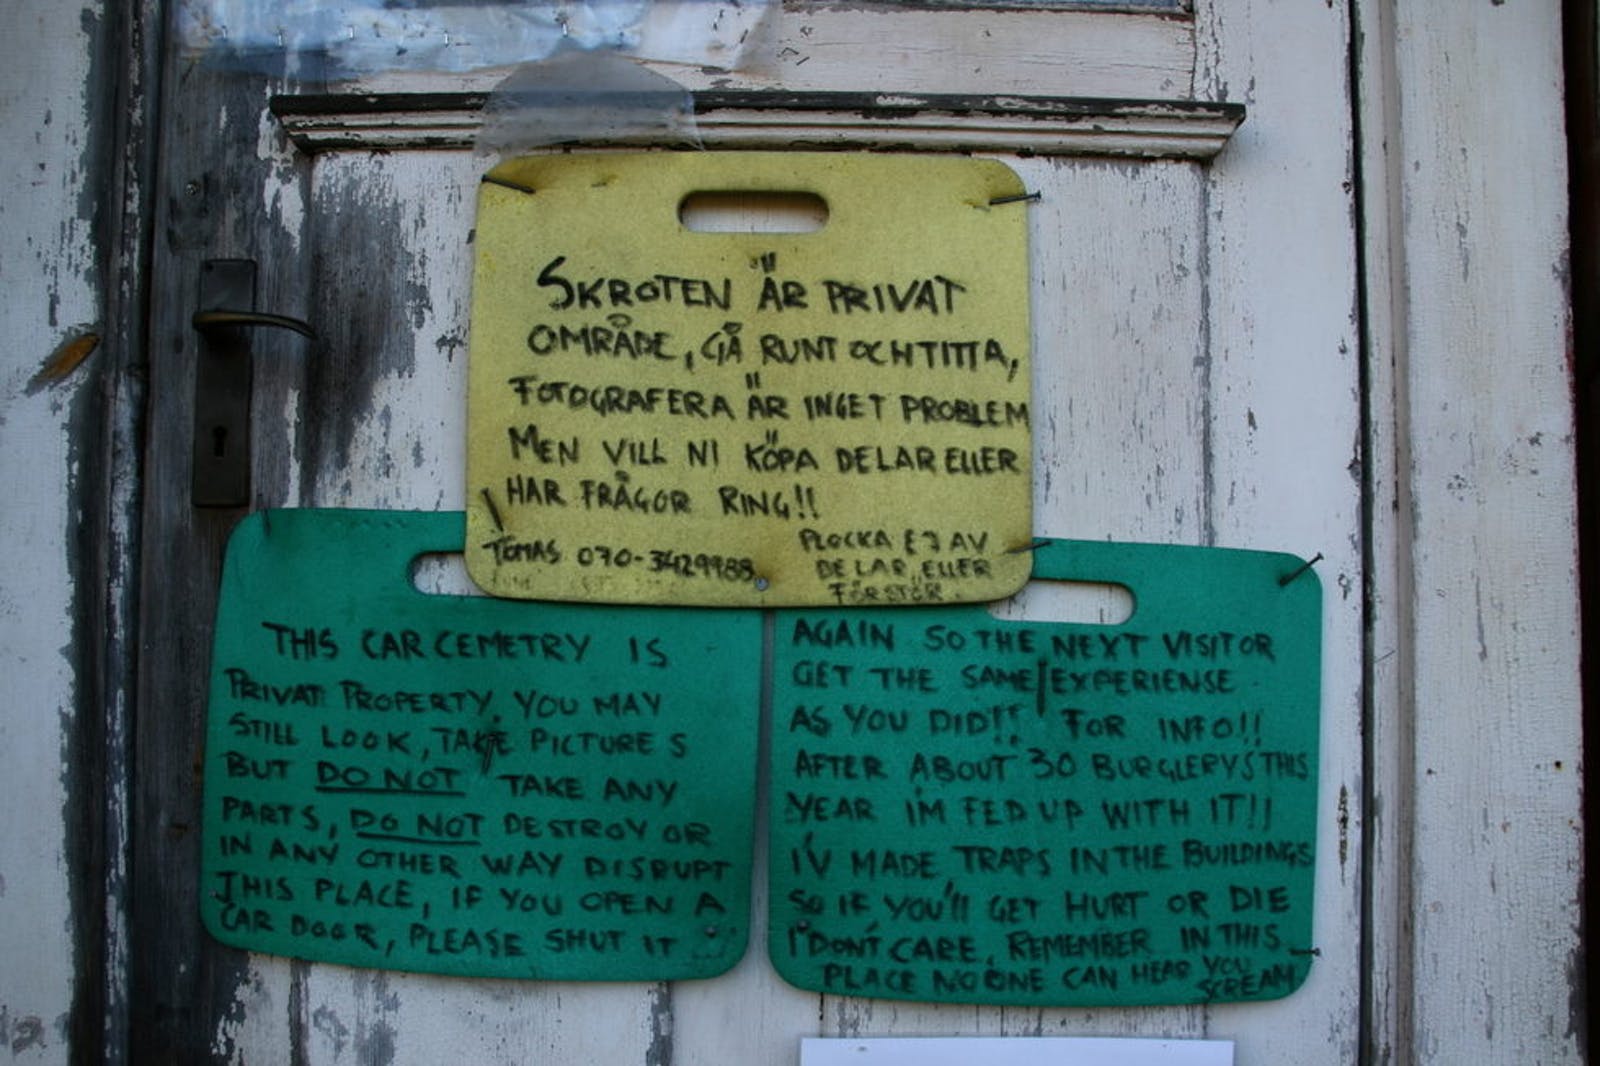 SKROTEN ÄR PRIVAT
OMRÅDE, GÅ RUNT OCH TITTA,
FOTOGRAFERA ÄR INGET PROBLEM
MEN VILL NI KÖPA DELAR ELLER
HAR FRÅGOR RING!!
TOMAS 070-3429988
PLOCKA EJ AV
DELAR, ELLER
FÖRSTÖR.
THIS CAR CEMETRY IS
PRIVAT PROPERTY, YOU MAY
STILL LOOK, TAKE PICTURES
BUT DO NOT TAKE ANY
PARTS, DO NOT DESTROY OR
IN ANY OTHER WAY DISRUPT
THIS PLACE, IF YOU OPEN A
CAR DOOR, PLEASE SHUT IT
AGAIN SO THE NEXT VISITOR
GET THE SAME EXPERIENSE
AS YOU DID!! FOR INFO!!
AFTER ABOUT 30 BURGLERYS THIS
YEAR I'M FED UP WITH IT!!
I'V MADE TRAPS IN THE BUILDINGS
SO IF YOU'll GET HURT OR DIE
I DON'T CARE, REMEMBER IN THIS
PLACE NO ONE CAN HEAR YOU
SCREAM